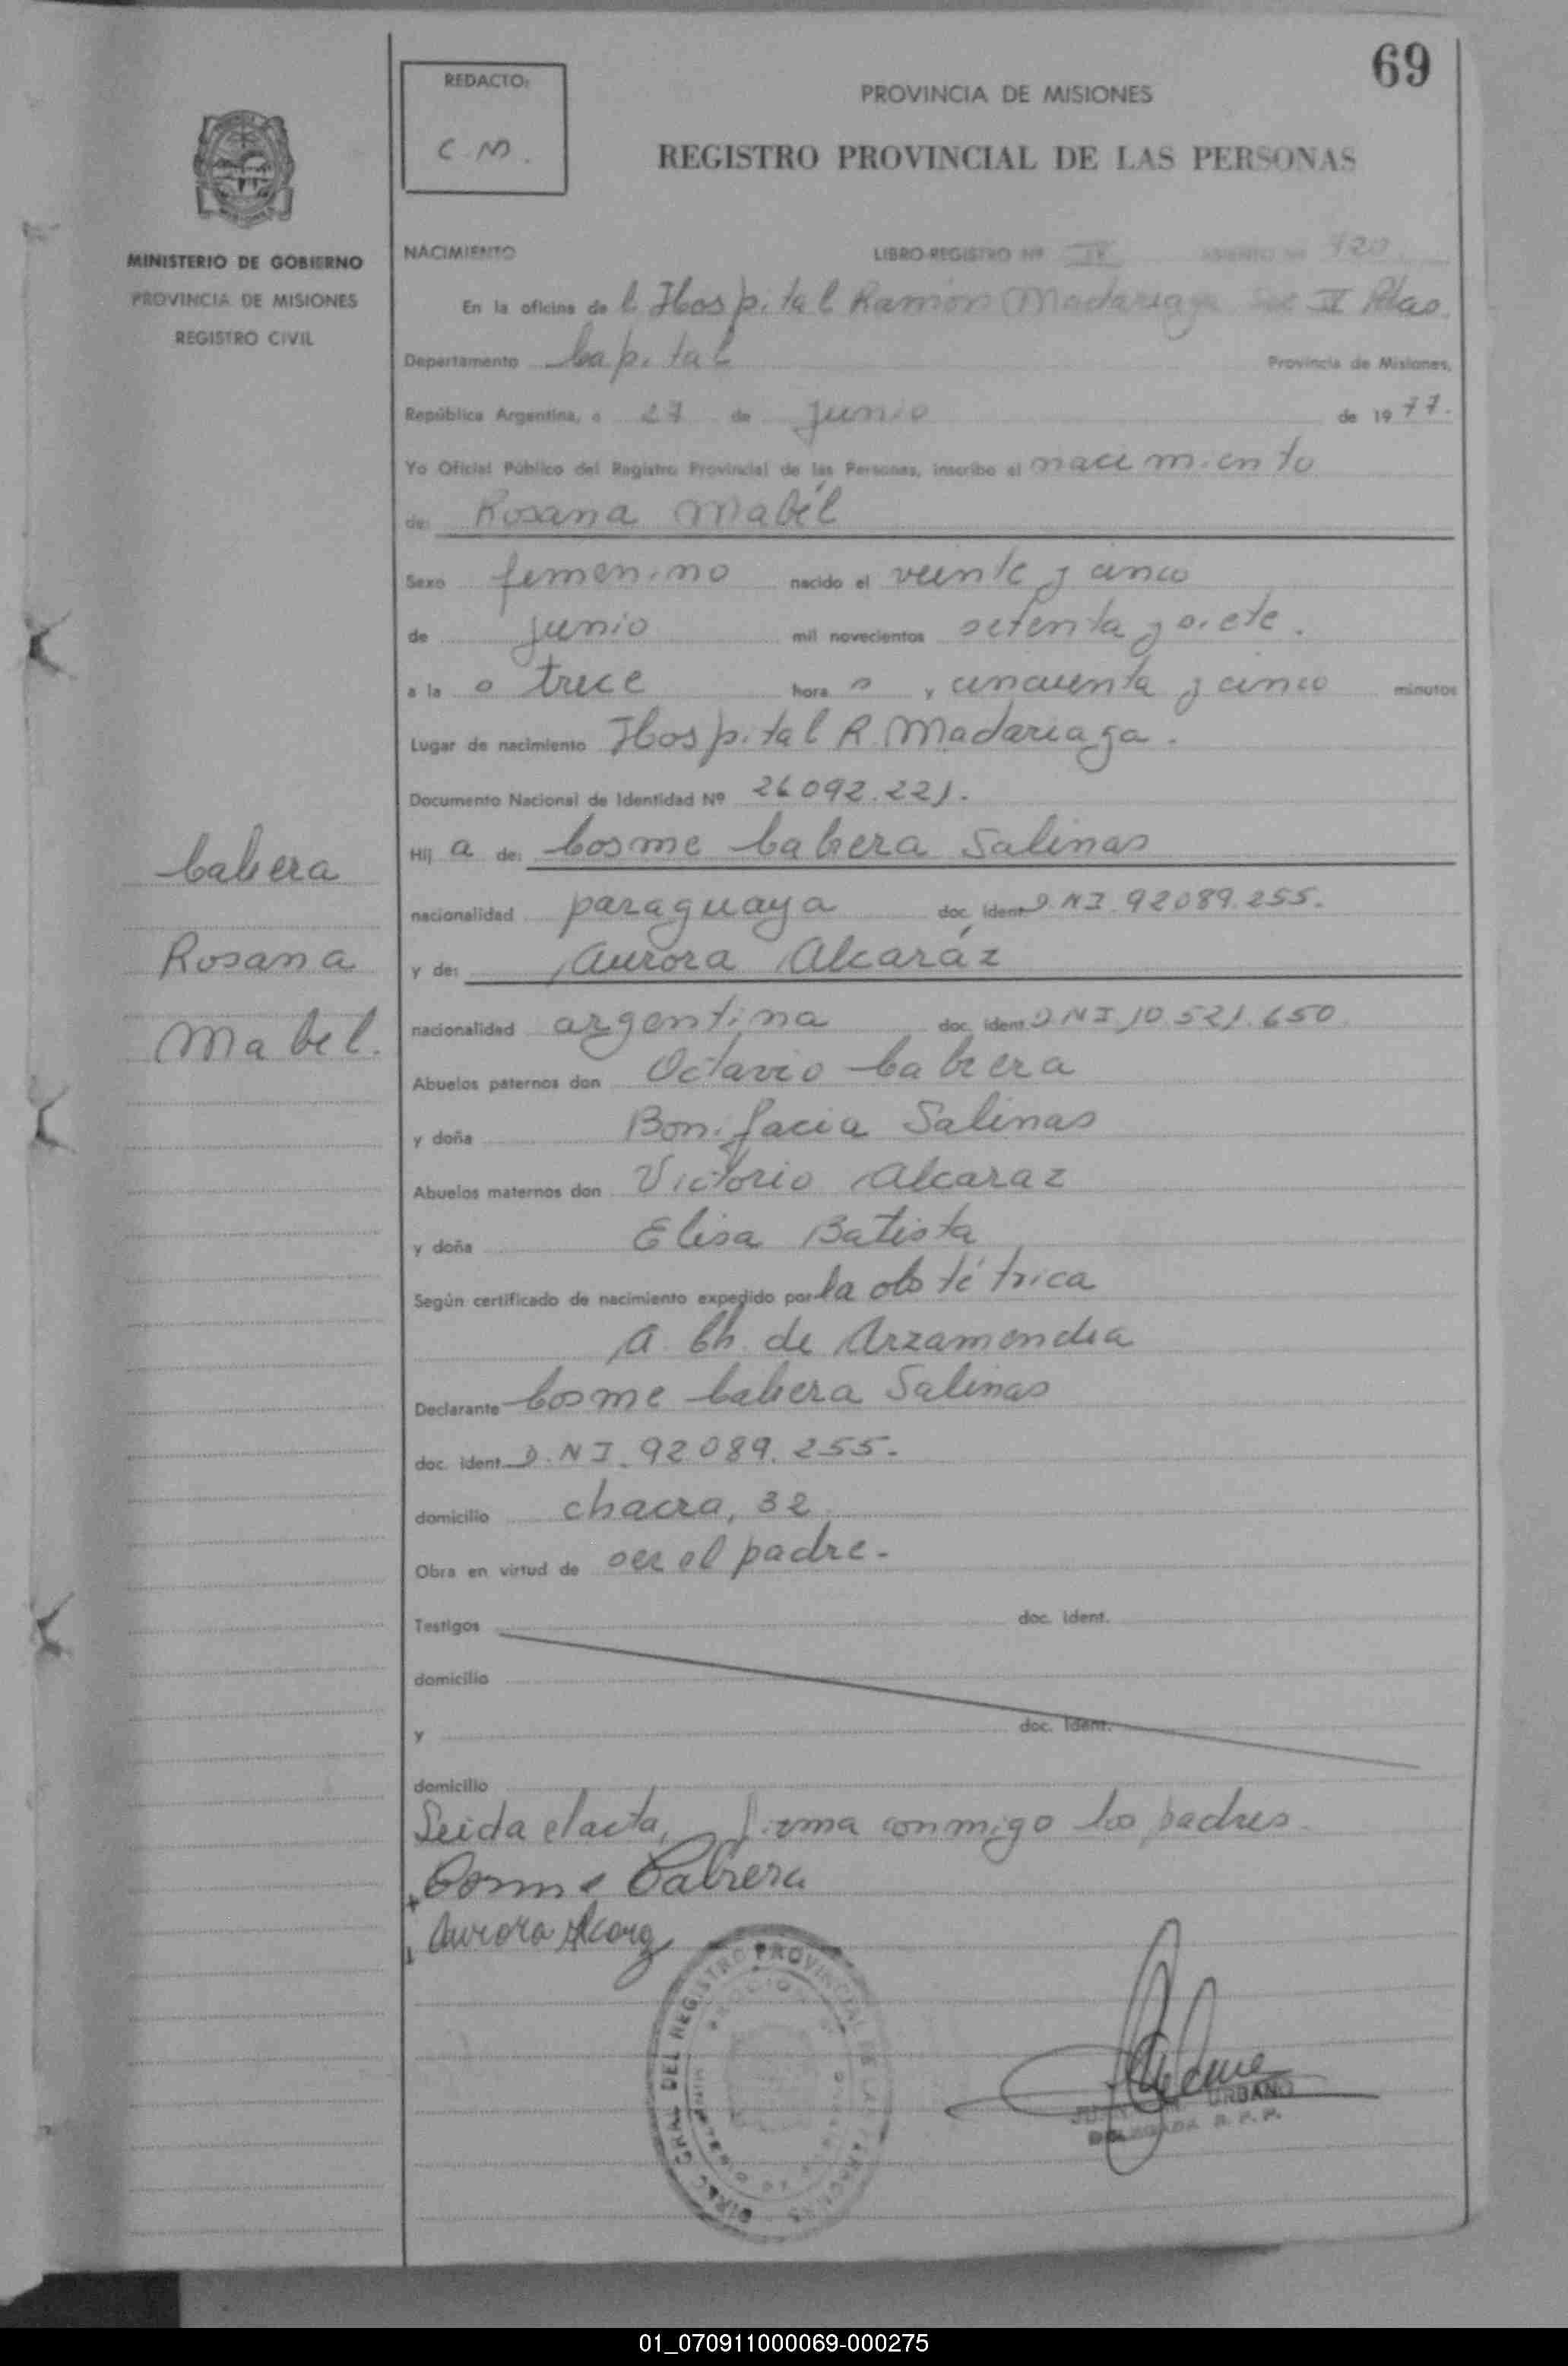 69
REDACTO:
C.M.
PROVINCIA DE MISIONES
REGISTRO PROVINCIAL DE LAS PERSONAS
MINISTERIO DE GOBIERNO
PROVINCIA DE MISIONES
REGISTRO CIVIL
NACIMIENTO LIBRO REGISTRO Nº IV ASIENTO Nº 720
En la oficina de l Hospital Ramón Madariaga Sec IV Pdas.
Departamento Capital Provincia de Misiones,
República Argentina, a 27 de junio de 1977.
Yo Oficial Público del Registro Provincial de las Personas, inscribo el nacimiento
de: Rosana Mabél
Sexo femenino nacido el veinte y cinco
de junio mil novecientos setenta y siete.
a la s trece hora s y cincuenta y cinco minutos
Lugar de nacimiento Hospital R. Madariaga.
Documento Nacional de Identidad Nº 26092.221.
Hij a de: Cosme Cabrera Salinas
nacionalidad paraguaya doc. ident. D.N.I. 92089.255.
y de: Aurora Alcaráz
nacionalidad argentina doc. ident. D.N.I. 10.521.650
Abuelos paternos don Octavio Cabrera
y doña Bonifacia Salinas
Abuelos maternos don Victorio Alcaraz
y doña Elisa Batista
Según certificado de nacimiento expedido por la obstétrica
A. Ch. de Arzamendia
Declarante Cosme Cabrera Salinas
doc. ident. D.N.I. 92.089.255.
domicilio chacra, 32
Obra en virtud de ser el padre.
Testigos doc. ident.
domicilio
y doc. ident.
domicilio
Leida el acta, firma conmigo los padres.
Cosme Cabrera
Aurora Alcaraz
Cabrera
Rosana
Mabel.
DIREC. GRAL. DEL REGISTRO PROVINCIAL DE LAS PERSONAS
URBANO
DELEGADA R. P. P.
01_070911000069-000275